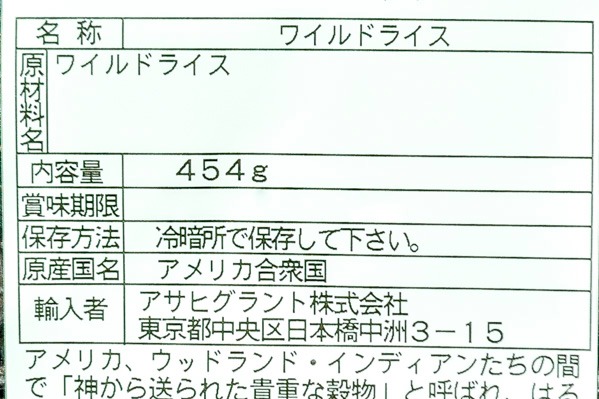 名称 ワイルドライス
原材料名 ワイルドライス
内容量 454g
賞味期限
保存方法 冷暗所で保存して下さい。
原産国名 アメリカ合衆国
輸入者 アサヒグラント株式会社
東京都中央区日本橋中洲3-15
アメリカ、ウッドランド・インディアンたちの間
で「神から送られた貴重な穀物」と呼ばれ、はる